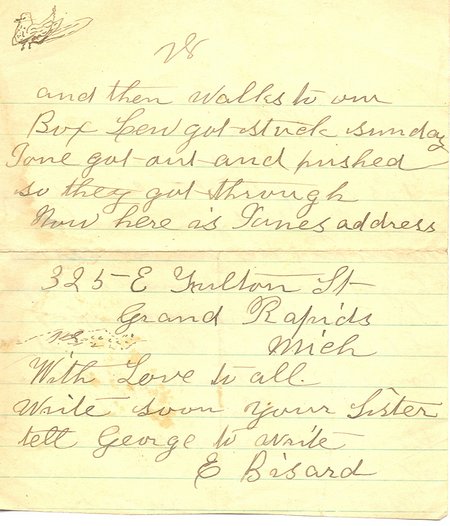 and then walks to our
Box Lew got stuck sunday
Ione got out and pushed
so they got through
Now here is Iones address
325 E Fulton St
Grand Rapids
Mich
With Love to all.
Write soon your Sister
tell George to write
E Bisard